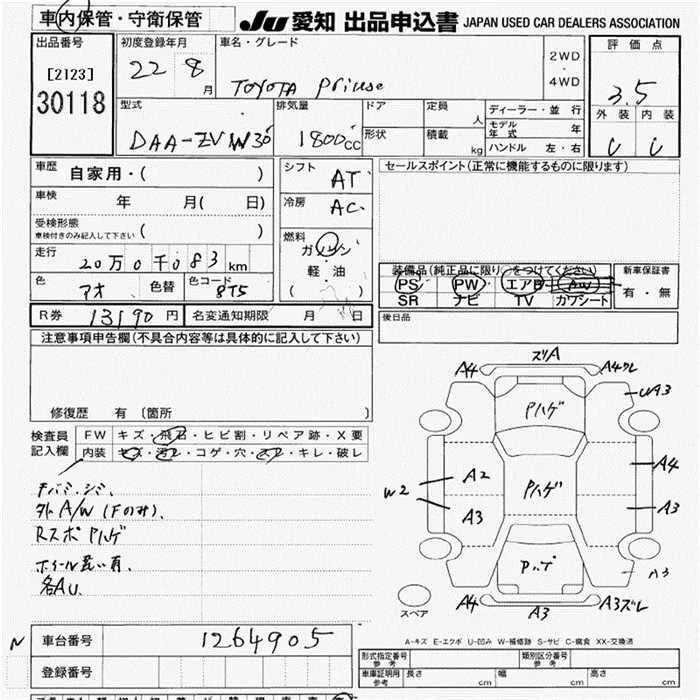 車内保管・守衛保管
JU 愛知 出品申込書 JAPAN USED CAR DEALERS ASSOCIATION
出品番号
[2123]
30118
初度登録年月
22 8 月
車名・グレード
TOYOTA Priuse
2WD
・
4WD
評価点
3.5
外装 内装
型式
DAA-ZVW30
排気量
1800cc
ドア
形状
定員
人
積載
kg
ディーラー・並行
モデル年式 年
ハンドル 左・右
車歴
自家用・( )
車検
年 月( 日)
受検形態
車検付きのみ記入して下さい ( )
走行
20万0千083km
色
アオ
色替
色コード
8T5
シフト
AT
冷房
AC
燃料
ガソリン
軽・油
( )
セールスポイント(正常に機能するものに限ります)
装備品(純正品に限り○をつけてください)
PS PW エアB AW
SR ナビ TV カワシート
新車保証書
有・無
R券 13190円
名変通知期限 月 日
後日品
注意事項申告欄(不具合内容等は具体的に記入して下さい)
修復歴 有 (箇所 )
検査員
記入欄
FW キズ・飛石・ヒビ割・リペア跡・X要
内装 キズ・汚レ・コゲ・穴・スレ・キレ・破レ
外A/W(Fのみ).
RスポPハゲ
各AU.
ズリA
A4
A4クレ
UA3
Pハゲ
A4
A2
W2
Pハゲ
A3
A3
A3
A4
A3
A3ズレ
スペア
A-キズ E-エクボ U-凹み W-補修跡 S-サビ C-腐食 XX-交換済
N
車台番号 1264905
登録番号
形式指定番号
参考
類別区分番号
参考
車庫証明用
参考
長さ cm
幅 cm
高さ cm